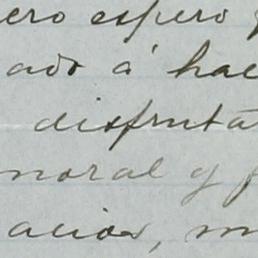 ero espero
ado á hac
disfruta
moral y f
acios, m